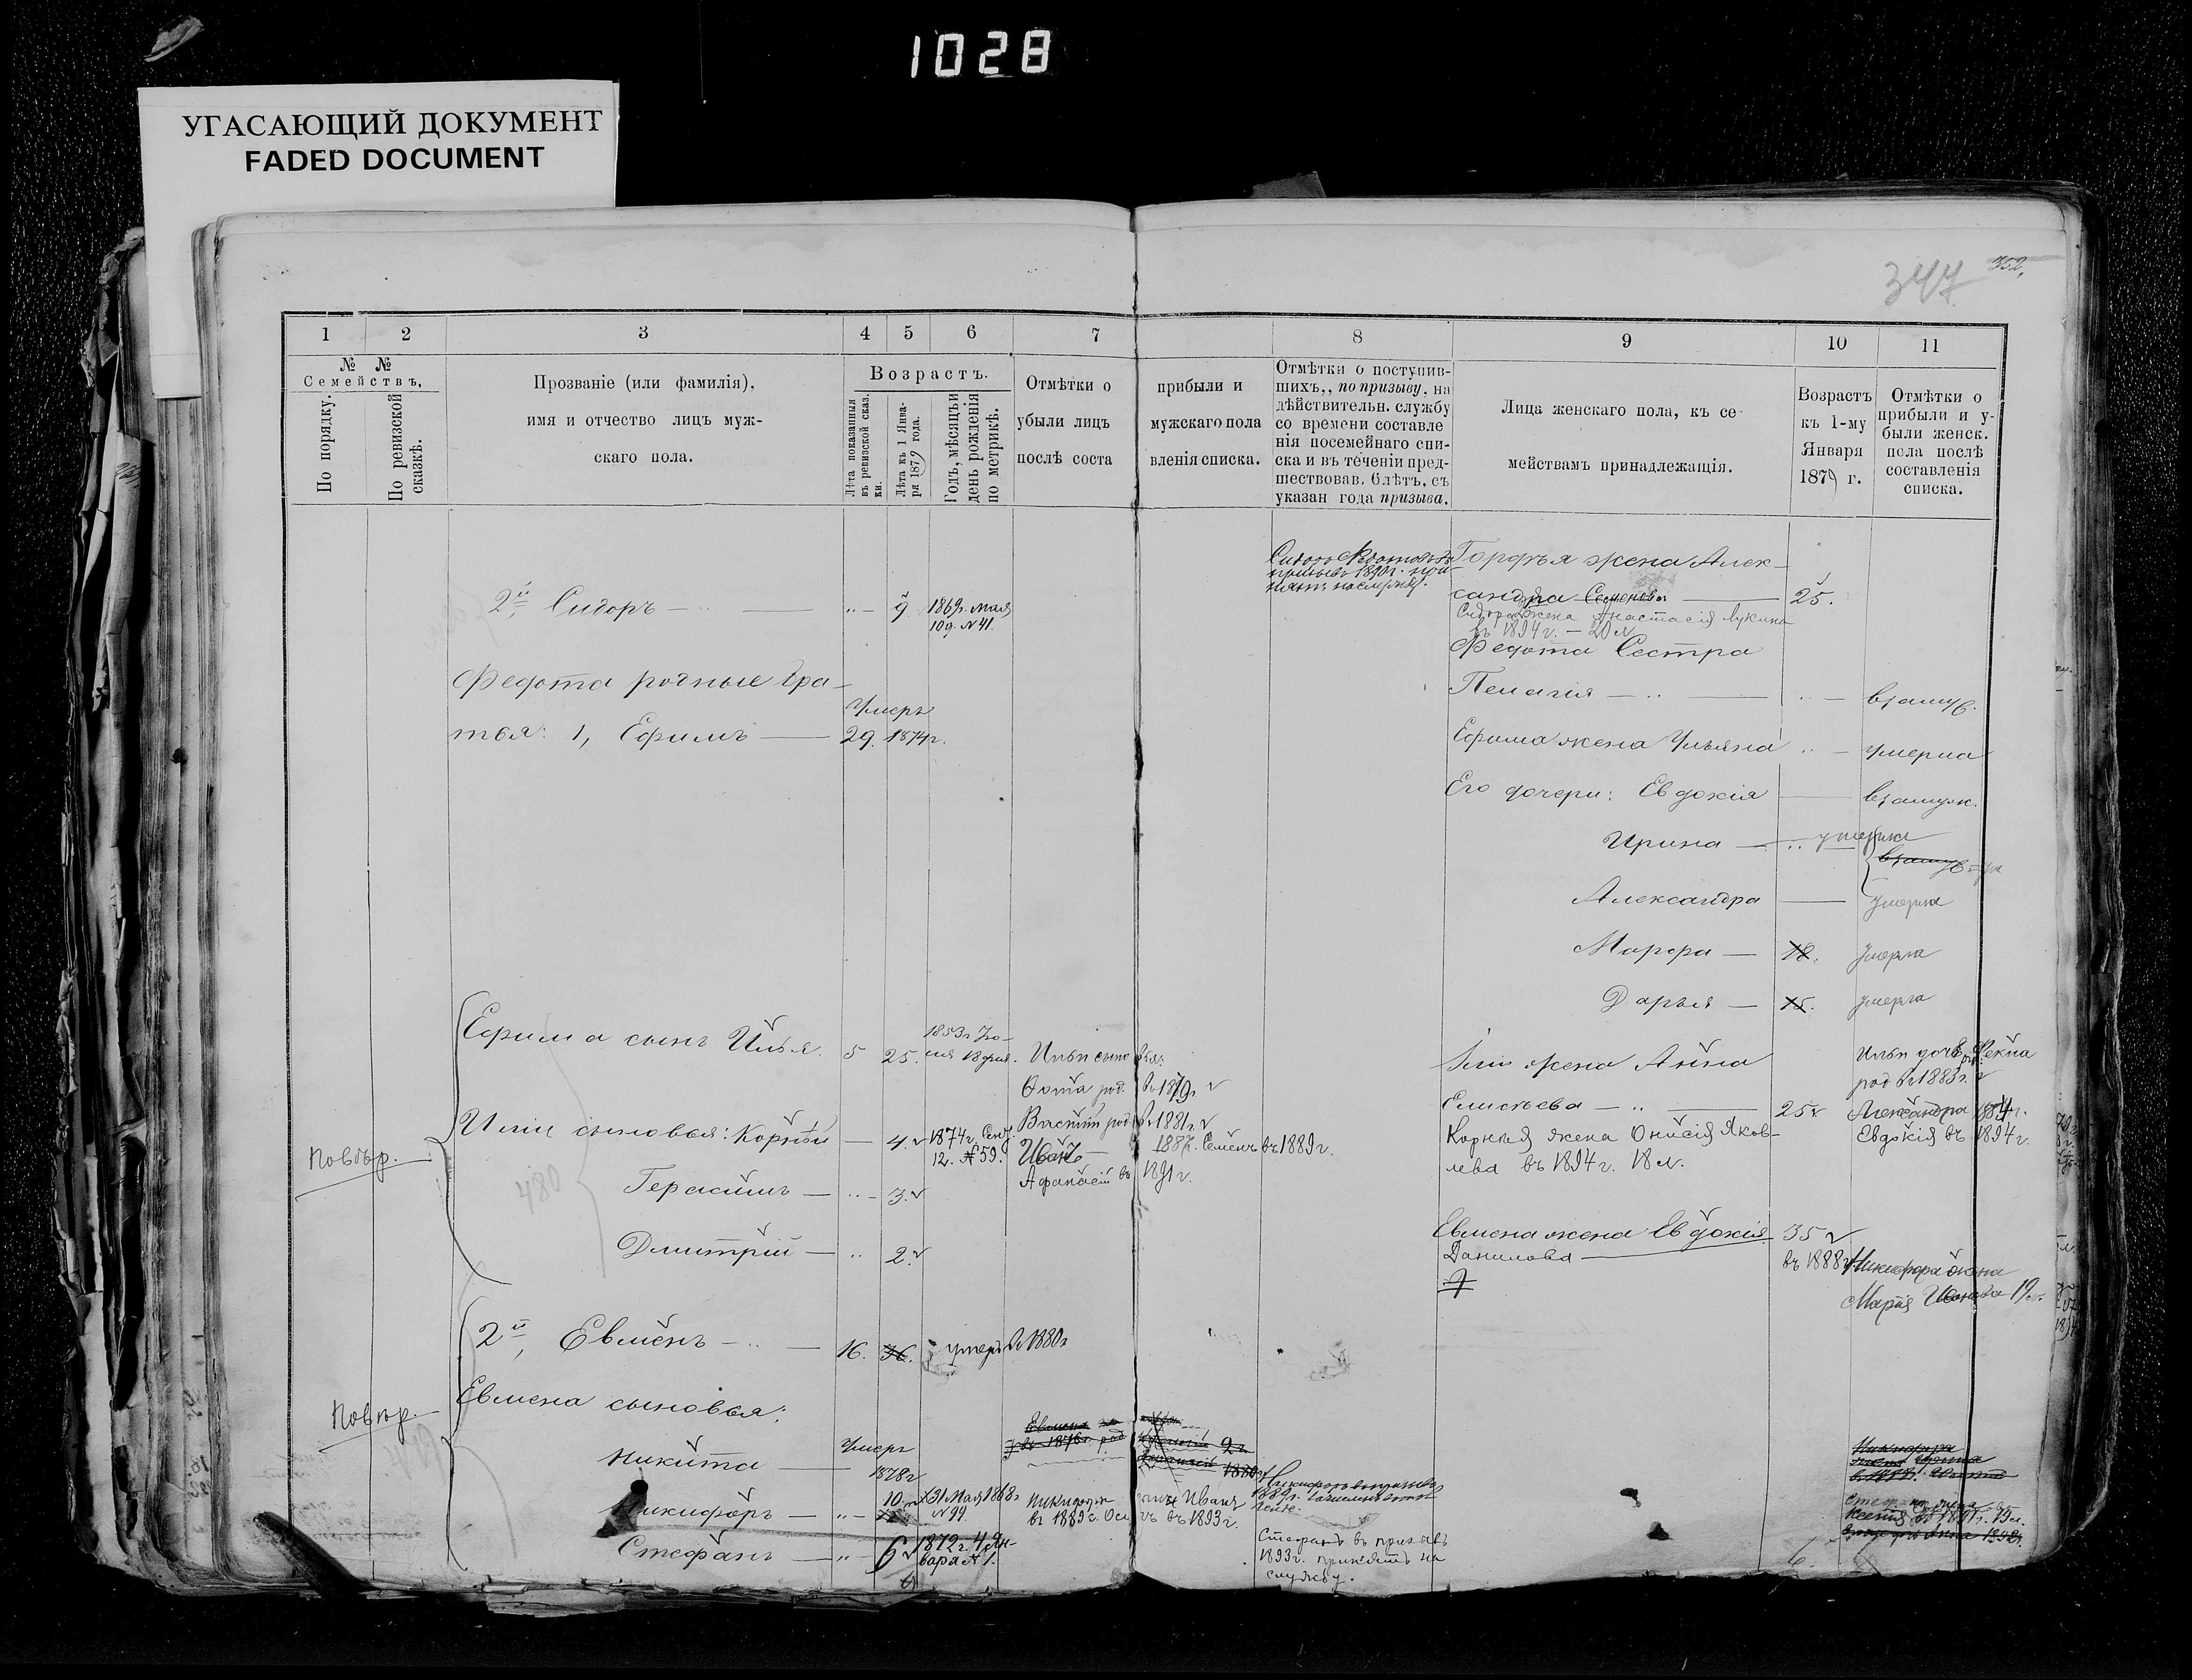 1028
УГАСАЮЩИЙ ДОКУМЕНТ
FADED DOCUMENT
347
352,
1 2 3 4 5 6 7 8 9 10 11
№ №
Семействъ,
По порядку.
По ревизской сказкѣ.
Прозваніе (или фамилія),
имя и отчество лицъ муж-
скаго пола.
Возрастъ.
Лѣта показанныя
въ ревизской сказ.
ки.
Лѣта къ 1 Янва-
ря 1879 года.
Годъ, мѣсяцъ и
день рожденія
по метрикѣ.
Отмѣтки о прибыли и
убыли лицъ мужскаго пола
послѣ соста вленія списка.
Отмѣтки о поступив-
шихъ,, по призыву, на
дѣйствительн. службу
со времени составле
нія посемейнаго спи-
ска и въ теченіи пред-
шествовав. 6лѣтъ, съ
указан года призыва.
Лица женскаго пола, къ се-
мействамъ принадлежащія.
Возрастъ
къ 1-му
Января
1879 г.
Отмѣтки о
прибыли и у-
были женск.
пола послѣ
составленія
списка.
2й, Сидоръ — 9 1869г. мая
10д. N 41.
Сидоръ
1890г.
жена Алек-
сандра Семенова — 25.
Сидора жена Анастасія Лукина
въ 1894 г. — 20 л
Федота Сестра
Пелагія — взамуж.
Федота родные бра-
тья: 1, Ефимъ — 29. Умеръ 1874г.
Ефима жена Ульяна — умерла
Его дочери: Евдокія — взамуж.
Ирина — умерла
взамуж
Александра — умерла
Марфа — 18. умерла
Дарья — 15. умерла
Ефима сынъ Илья. 5 25. 1853г. Iю-
ля 18 дня. Ильи сыновья:
Фома род. въ 1879г.
Василій род. въ 1881г.
Иванъ — 188 Семенъ въ 1889г.
Афанасій въ 1891г.
Ильи жена Анна
Елисеева — 25
Ильи дочь Фекла
род. въ 1883г.
Александра 1884г.
Евдокія въ 1894г.
Ильи сыновья: Корнѣй — 4. 1874г. Сент.
12. № 59.
Корнѣя жена Онисія Яков-
лева въ 1894г. 18 л.
Повѣр.
480
Герасимъ — 3.
Дмитрій — 2.
Евмена жена Евдокія 35
Данилова —
въ 1888г. Никифора жена
Марія Иванова 19 л.
2й, Евменъ — 16. 36. умеръ въ 1880г
Евмена сыновья:
Повѣр.
Никита — Умеръ
1878г
Никифоръ — 10 31 Мая 1868г
N 99.
Никифора сынъ Иванъ
въ 1889г. въ 1893г.
Стефанъ — 6 1872г. 4 Ян-
варя № 1.
Стефанъ въ призывъ
1893г. принятъ на
службу.